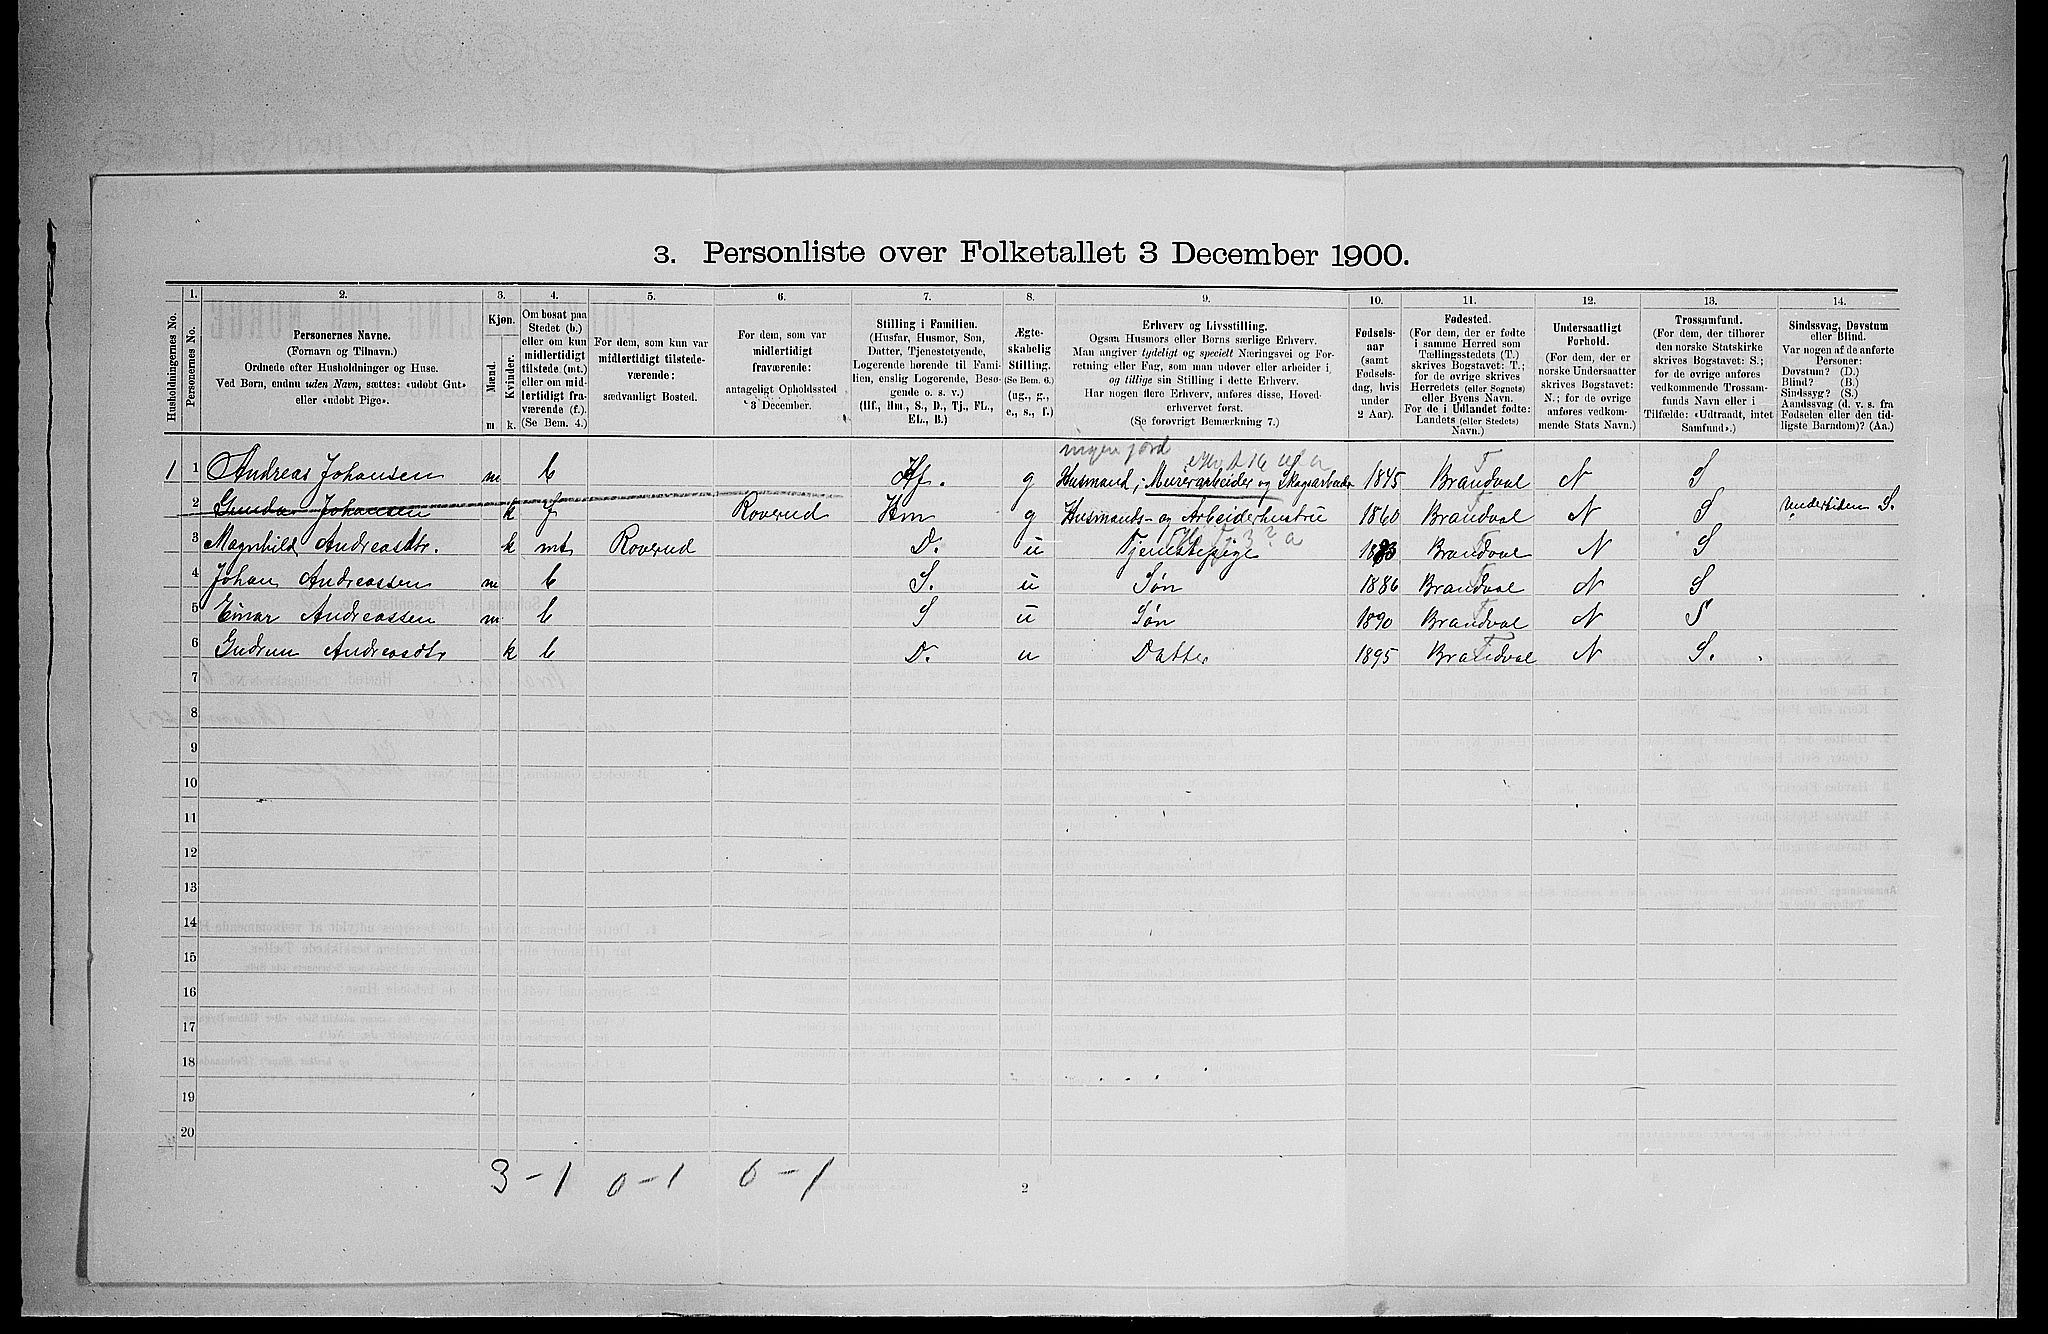 3. Personliste over Folketallet 3 December 1900.
Husholdningernes No.
1. Personernes No.
2. Personernes Navne.
(Fornavn og Tilnavn.)
Ordnede efter Husholdninger og Huse.
Ved Børn, endnu uden Navn, sættes: «udøbt Gut»
eller «udøbt Pige».
3. Kjøn.
Mænd. m
Kvinder. k.
4. Om bosat paa
Stedet (b.)
eller om kun
midlertidigt
tilstede (mt.)
eller om mid-
lertidigt fra-
værende (f.)
(Se Bem. 4.)
5. For dem, som kun var
midlertidigt tilstede-
værende:
sædvanligt Bosted.
6. For dem, som var
midlertidigt
fraværende:
antageligt Opholdssted
3 December.
7. Stilling i Familien.
(Husfar, Husmor, Søn,
Datter, Tjenestetyende,
Logerende hørende til Fami-
lien, enslig Logerende, Besø-
gende o. s. v.)
(Hf., Hm., S., D., Tj., FL.,
EL., B.)
8. Ægte-
skabelig
Stilling.
(Se Bem. 6.)
(ug., g.,
e., s., f.)
9. Erhverv og Livsstilling.
Ogsaa Husmors eller Børns særlige Erhverv.
Man angiver tydeligt og specielt Næringsvei og For-
retning eller Fag, som man udøver eller arbeider i,
og tillige sin Stilling i dette Erhverv.
Har nogen flere Erhverv, anføres disse, Hoved-
erhvervet først.
(Se forøvrigt Bemærkning 7.)
10. Fødsels-
aar
(samt
Fødsels-
dag, hvis
under
2 Aar).
11. Fødested.
(For dem, der er fødte
i samme Herred som
Tællingsstedets (T.)
skrives Bogstavet: T.;
for de øvrige skrives
Herredets (eller Sognets)
eller Byens Navn.
For de i Udlandet fødte:
Landets (eller Stedets)
Navn.)
12. Undersaatligt
Forhold.
(For dem, der er
norske Undersaatter
skrives Bogstavet:
N.; for de øvrige
anføres vedkom-
mende Stats Navn.)
13. Trossamfund.
(For dem, der tilhører
den norske Statskirke
skrives Bogstavet: S.;
for de øvrige anføres
vedkommende Trossam-
funds Navn eller i
Tilfælde: «Udtraadt, intet
Samfund».)
14. Sindssvag, Døvstum
eller Blind.
Var nogen af de anførte
Personer:
Døvstum? (D.)
Blind? (B.)
Sindssyg? (S.)
Aandssvag (d. v. s. fra
Fødselen eller den tid-
ligste Barndom)? (Aa.)
ingen jord
1 1 Andreas Johansen m b Hf. g Husmand, Murerarbeider og Skogsarbeider 1845 Brandval T N S
2 Gunda Johansen k f Roverud Hm g Husmands- og Arbeiderhustru 1860 Brandval T N S Undertiden S.
3 Magnhild Andreasdtr. k mt Roverud D. u Tjenestepige 1883 Brandval T N S
4 Johan Andreassen m b S. u Søn 1886 Brandval T N S
5 Einar Andreassen m b S u Søn 1890 Brandval T N S
6 Gudrun Andreasdtr k b D. u Datter 1895 Brandval T N S.
7
8
9
10
11
12
13
14
15
16
17
18
19
20
3-1 0-1 0-1
2